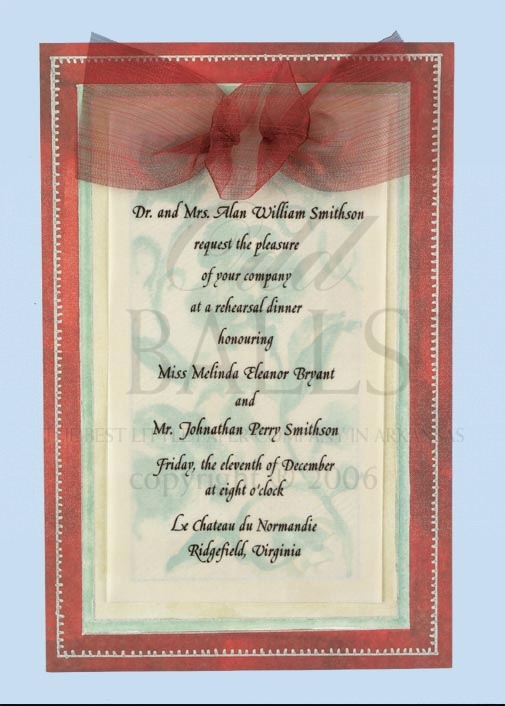 Dr. and Mrs. Alan William Smithson
request the pleasure
of your company
at a rehearsal dinner
honouring
Miss Melinda Eleanor Bryant
and
Mr. Johnathan Perry Smithson
Friday, the eleventh of December
at eight o'clock
Le Chateau du Normandie
Ridgefield, Virginia
BALLS
copyright © 2006